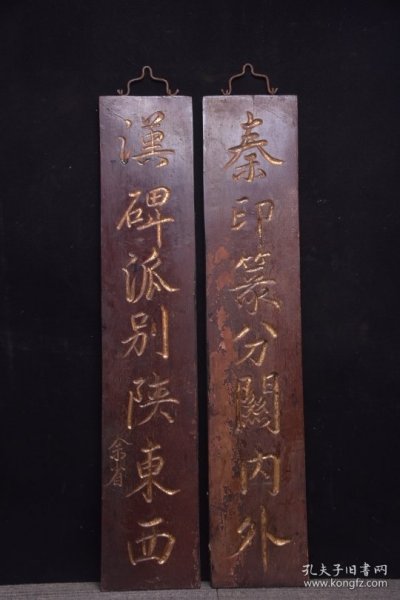 秦印篆分關内外
漢碑派别陝東西
余省
孔夫子旧书网
www.kongfz.com